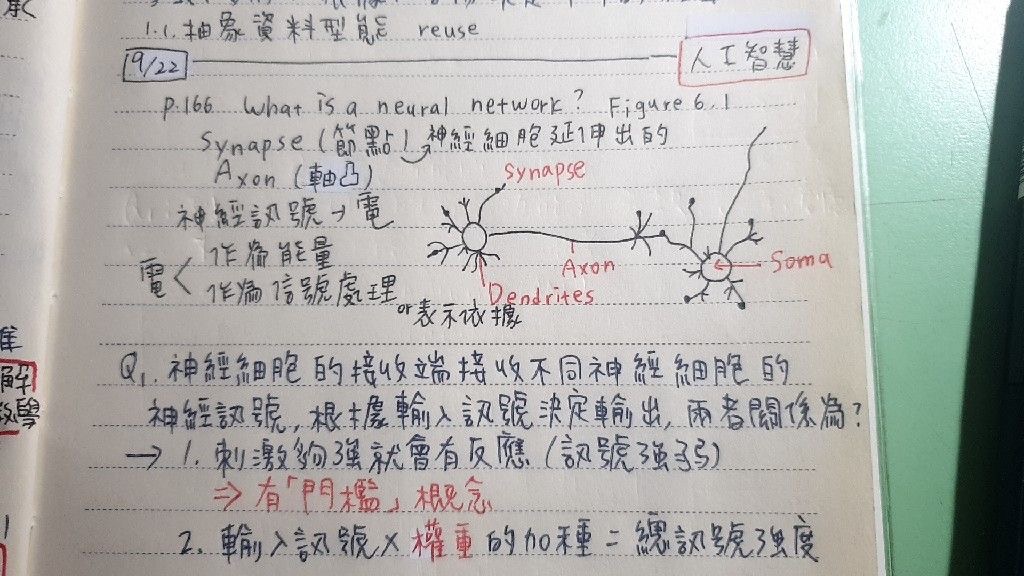 1.1. 抽象資料型態 reuse
9/22
人工智慧
p.166 What is a neural network? Figure 6.1
Synapse (節點) 神經細胞延伸出的
Axon (軸凸)
synapse
神經訊號 → 電
電 < 作為能量
作為信號處理 or 表示依據
Axon
Soma
Dendrites
Q1. 神經細胞的接收端接收不同神經細胞的
神經訊號, 根據輸入訊號決定輸出, 兩者關係為?
→ 1. 刺激夠強就會有反應 (訊號強弱)
⇒ 有「門檻」概念
2. 輸入訊號 × 權重的加種 = 總訊號強度
准
解
教學